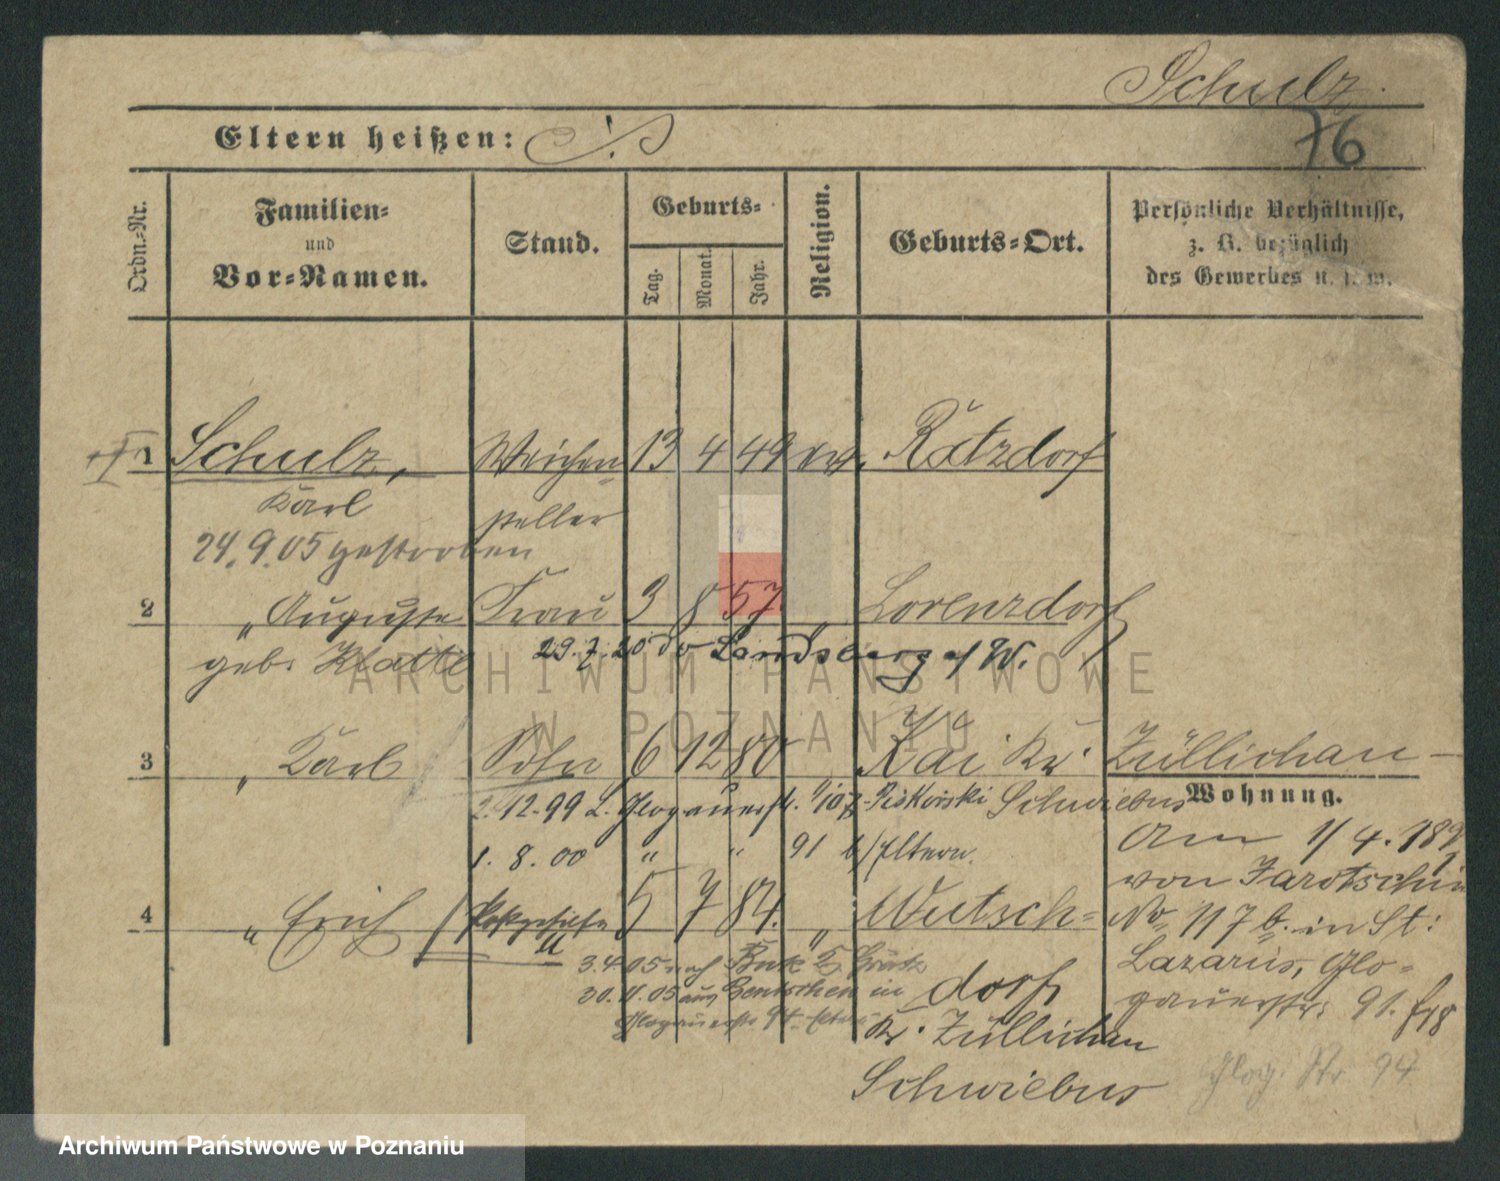 Schulz
76
Eltern heißen:
Ordn.-Nr.
Familien-
und
Vor-Namen.
Stand.
Geburts-
Tag.
Monat.
Jahr.
Religion.
Geburts-Ort.
Persönliche Verhältnisse,
z. B. bezüglich
des Gewerbes u. s. w.
1 Schulz, Weichen- 13 4 49 ev. Ratzdorf
Karl steller
24.9.05 gestorben
2 " Auguste Frau 3 8 57 " Lorenzdorf
geb. Klatte 29.7.20 Landsberg a/W.
3 " Karl Sohn 6 12 80 " Kai Kr. Züllichau-
2.12.99 Glogauerstr. 107 Piskorski Schwiebus
1. 8. 00 " " 91 b/Eltern.
4 " Erich 5 7 84. " Wutsch-
3.4.05 nach Buk
30. 05 aus Bentschen in dorf
Glogauerstr. 94 Kr. Züllichau
Schwiebus
Wohnung.
Am 1/4. 189
von Jarotschin
No. 117 b. in St:
Lazarus, Glo-
gauerstr. 91.
Glog. Str 94
ARCHIWUM PAŃSTWOWE
W POZNANIU
Archiwum Państwowe w Poznaniu